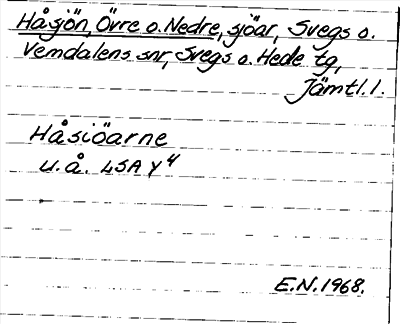 Håsjön, Övre o. Nedre, sjöar, Svegs o.
Vemdalens snr, Svegs o. Hede tg,
Jämtl. l.
Håsiöarne
u.å. LSA Y4
E.N. 1968.